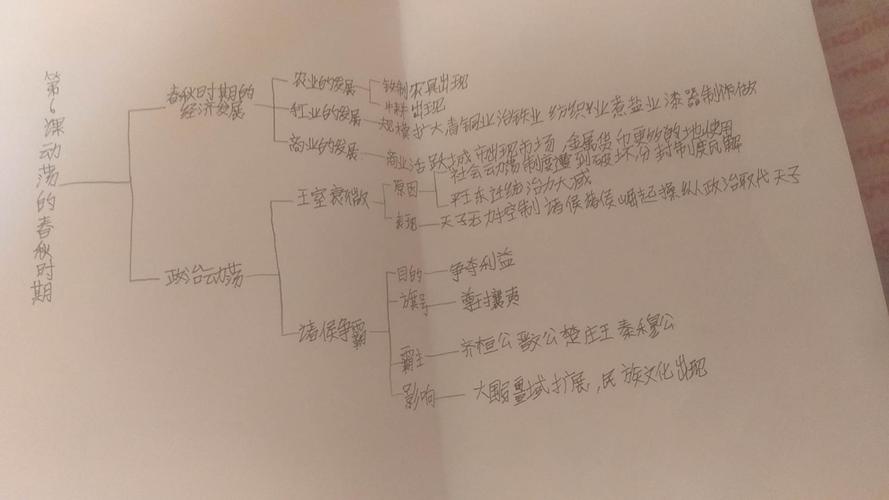 第6课动荡的春秋时期
春秋时期的
经济发展
农业的发展
铁制农具出现
牛耕出现
手工业的发展
规模扩大青铜业冶铁业纺织业煮盐业漆器制作做
商业的发展
商业活跃城市出现市场,金属货币更多的地使用
政治动荡
王室衰微
原因
社会动荡制度遭到破坏分封制度瓦解
平王东迁统治力大减
表现
天子无力控制诸侯诸侯崛起操纵政治取代天子
诸侯争霸
目的
争夺利益
旗号
尊王攘夷
霸主
齐桓公晋文公楚庄王秦穆公
影响
大国疆域扩展,民族文化出现